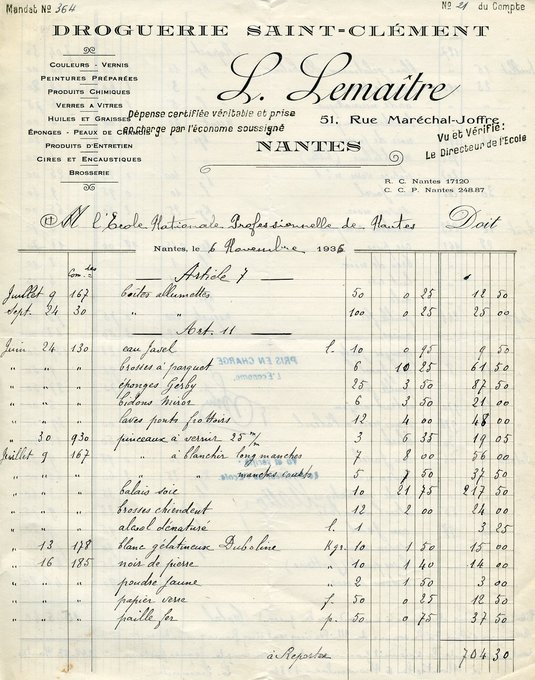 Mandat No 364
No 21 du Compte
DROGUERIE SAINT-CLÉMENT
COULEURS - VERNIS
PEINTURES PRÉPARÉES
PRODUITS CHIMIQUES
VERRES A VITRES
HUILES ET GRAISSES
ÉPONGES - PEAUX DE CHAMOIS
PRODUITS D'ENTRETIEN
CIRES ET ENCAUSTIQUES
BROSSERIE
L. Lemaître
Dépense certifiée véritable et prise
en charge par l'économe soussigné
51, RUE MARÉCHAL-JOFFRE
NANTES
Vu et Vérifié:
Le Directeur de l'Ecole
R. C. NANTES 17120
C. C. P. NANTES 248.87
M l'Ecole Nationale Professionnelle de Nantes Doit
Nantes, le 6 Novembre 1935
Com. des
Article 7
Juillet 9 167 boîtes allumettes 50 0 25 12 50
Sept. 24 30 " " 100 0 25 25 00
Art. 11
Juin 24 130 eau Javel l. 10 0 95 9 50
" " " brosses à parquet 6 10 25 61 50
" " " éponges Gerby 25 3 50 87 50
" " " bidons Miror 6 3 50 21 00
" " " laves ponts frottoirs 12 4 00 48 00
" 30 930 pinceaux à vernir 25 m/m 3 6 35 19 05
Juillet 9 167 " à blanchir long manches 7 8 00 56 00
" " " " " manches courts 5 7 50 37 50
" " " balais soie 10 21 75 217 50
" " " brosses chiendent 12 2 00 24 00
" " " alcool dénaturé l. 1 3 25
" 13 178 blanc gélatineux Duboline Kgr. 10 1 50 15 00
" 16 185 noir de pierre " 10 1 40 14 00
" " " poudre jaune " 2 1 50 3 00
" " " papier verre f. 50 0 25 12 50
" " " paille fer p. 50 0 75 37 50
à Reporter 704 30
PRIS EN CHARGE
L'Econome,